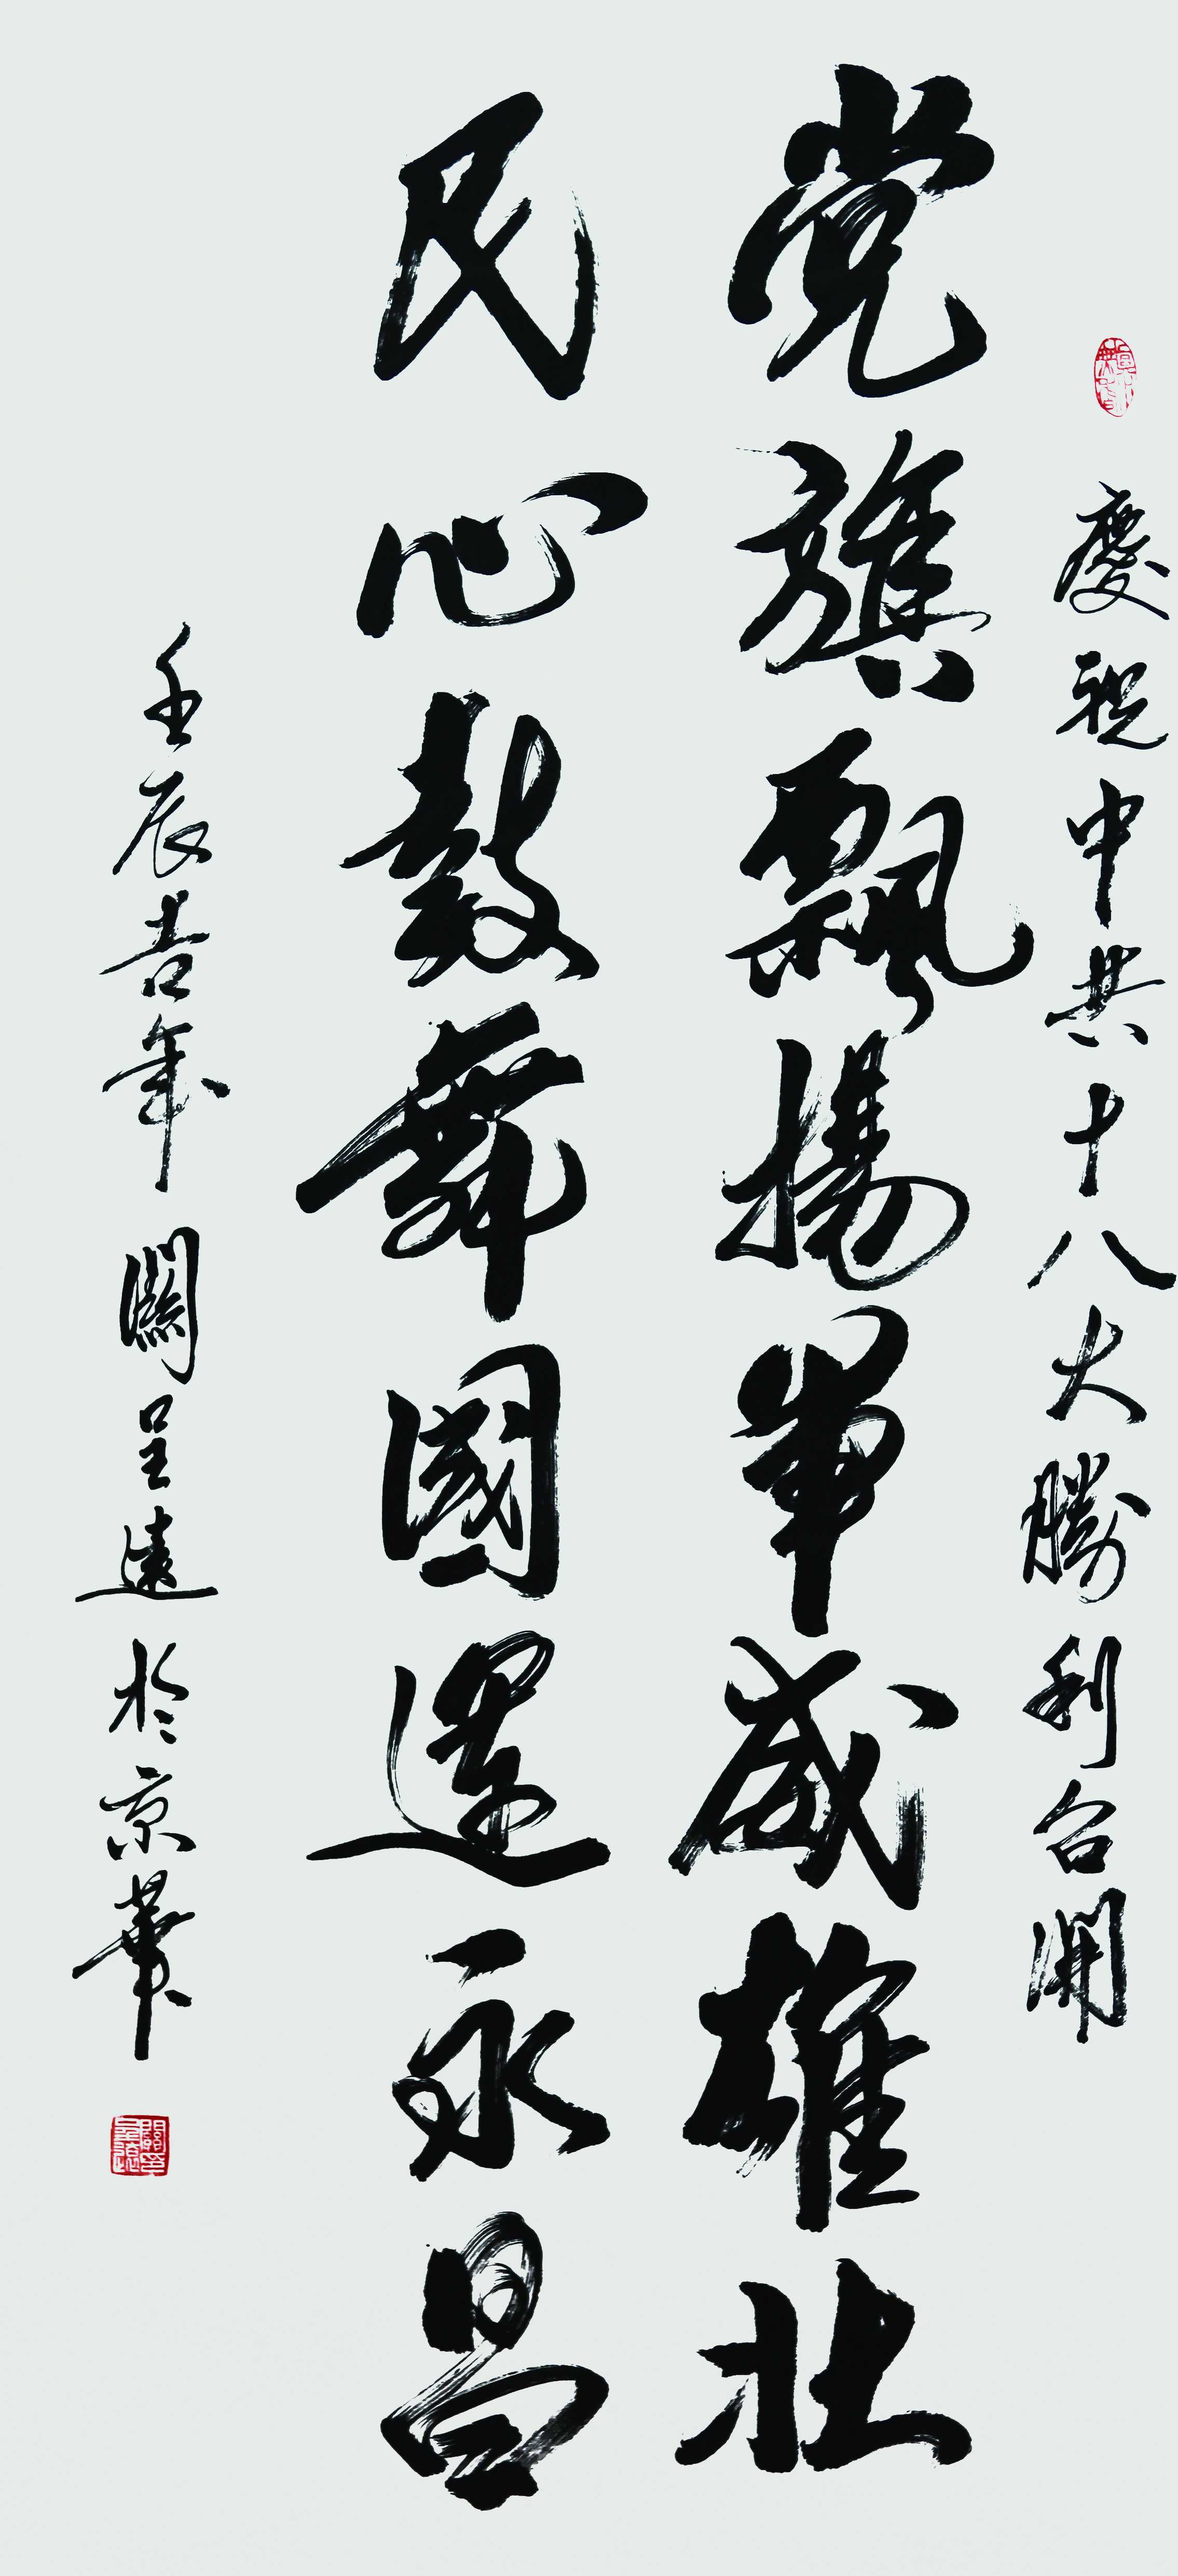 慶祝中共十八大勝利召開
党旗飄揚軍威雄壮
民心鼓舞國運永昌
壬辰吉年 關呈遠於京華